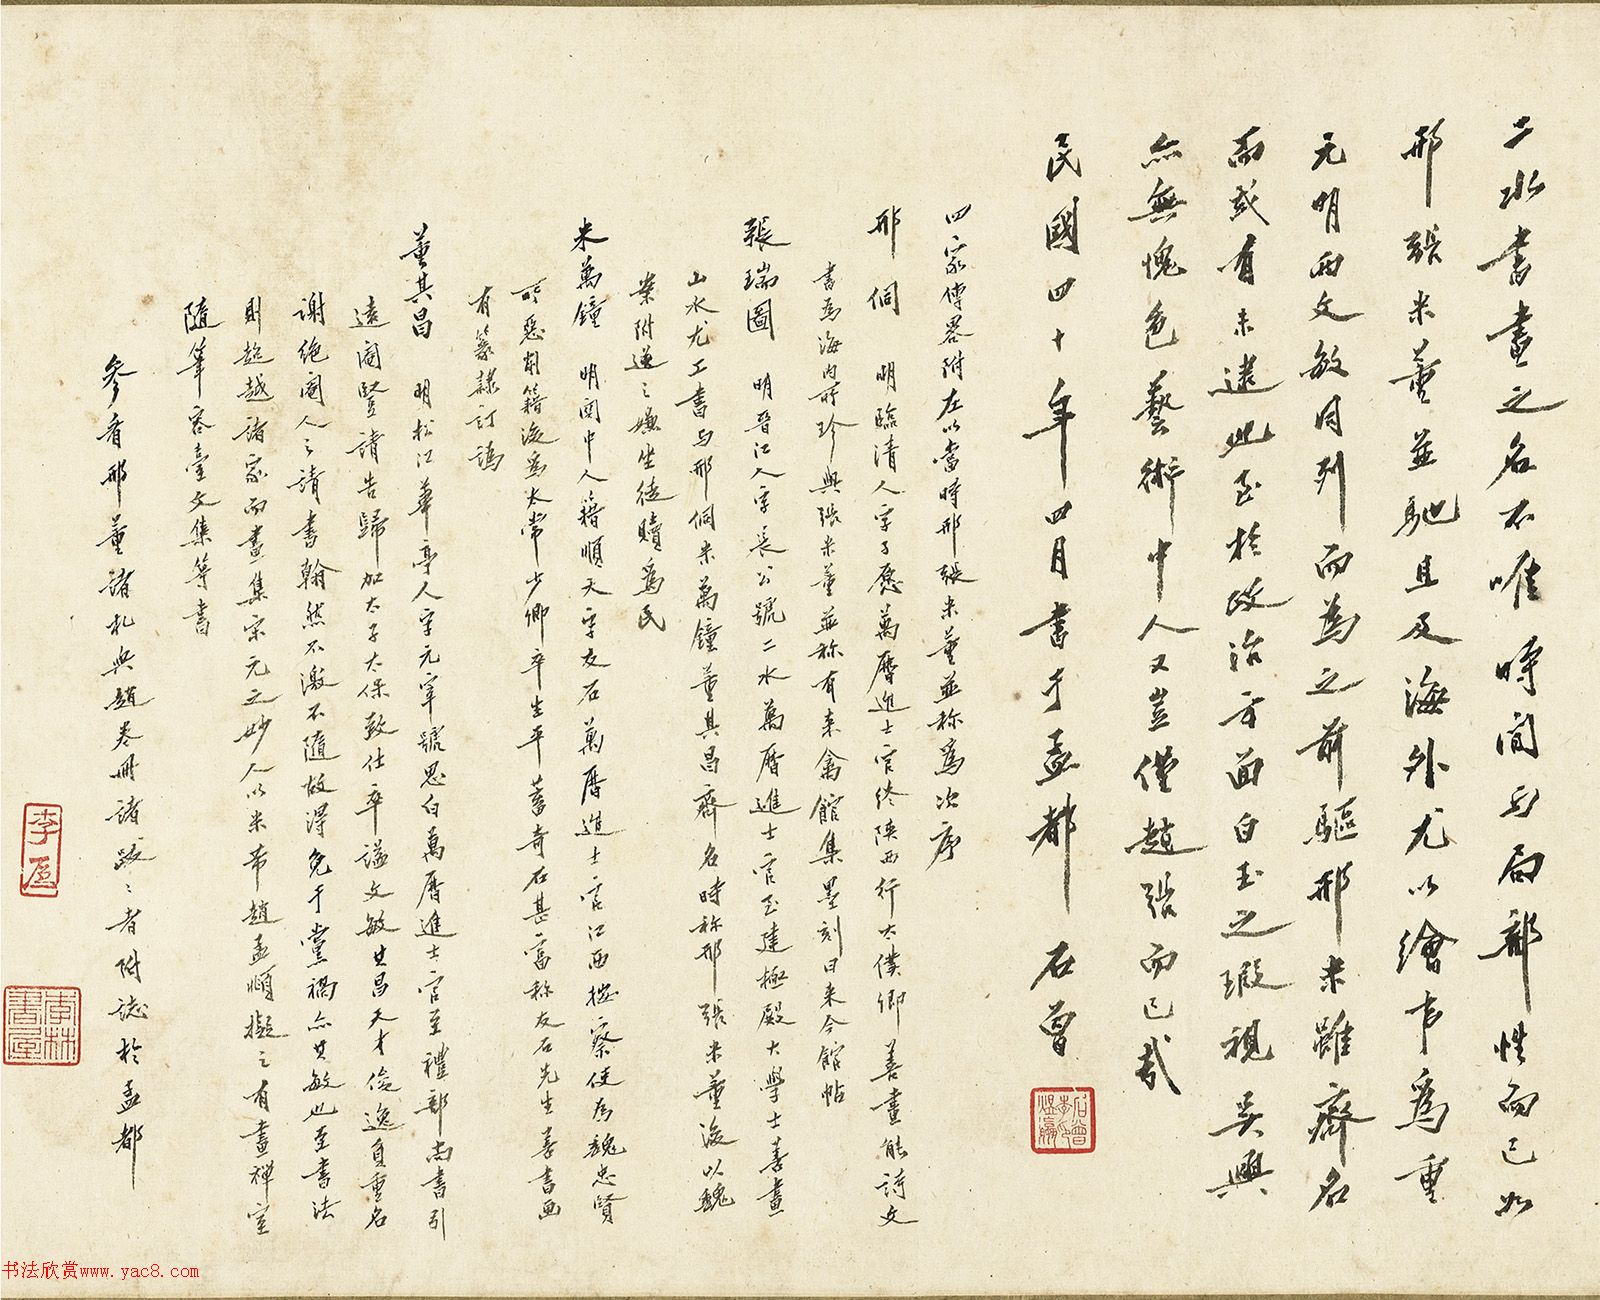 二水書畫之名不唯時間與局部性而已如
邢張米董並馳且及海外尤以繪事為重
元明兩文敏同列而為之前驅邢米雖齊名
而或有未逮此至於政治方面白玉之瑕視吳興
亦無愧色藝術中人又豈僅趙張而已哉
民國四十年四月書于孟都 石曾
四家傳畧附左以當時邢張米董並称為次序
邢侗 明臨清人字子愿萬曆進士官終陝西行太僕卿善畫能詩文
書為海內所珍與張米董並称有来禽館集墨刻曰来禽館帖
張瑞圖 明晉江人字長公號二水萬曆進士官至建極殿大學士善畫
山水尤工書与邢侗米萬鐘董其昌齊名時称邢張米董後以魏
案附逆之嫌坐徒贖為民
米萬鐘 明関中人籍順天字友石萬曆進士官江西按察使為魏忠賢
所惡削籍後為太常少卿卒生平蓄奇石甚富称友石先生善書画
有篆隸訂譌
董其昌 明松江華亭人字元宰號思白萬曆進士官至禮部尚書引
遠閹豎請告歸加太子太保致仕卒諡文敏其昌天才俊逸負重名
謝绝閹人之請書翰然不激不隨故得免于黨禍亦其敏也至書法
則超越諸家而畫集宋元之妙人以米芾趙孟頫擬之有畫禅室
隨筆容臺文集等書
參看邢董諸札與趙卷冊諸跋之者附誌於孟都
李
書法欣赏www.yac8.com